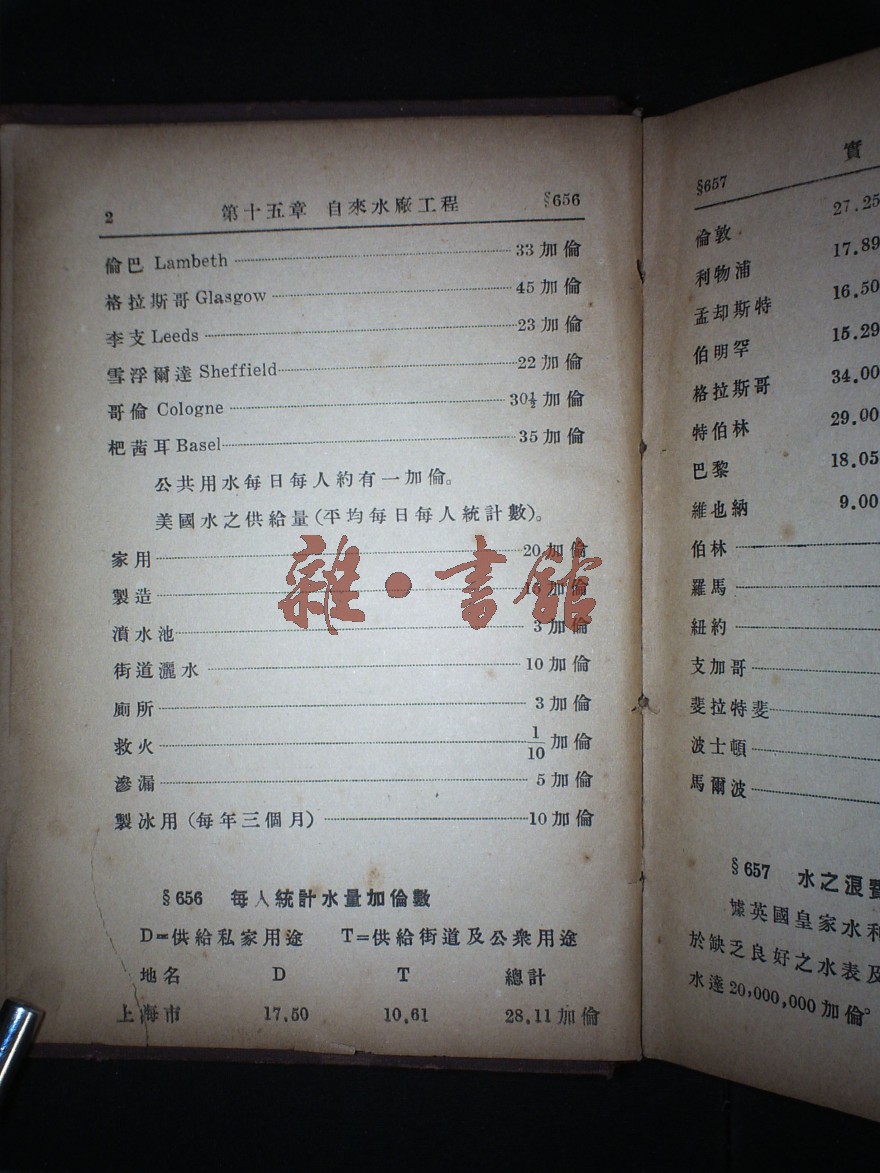 2 第十五章 自來水廠工程 §656
倫巴 Lambeth 33 加倫
格拉斯哥 Glasgow 45 加倫
李支 Leeds 23 加倫
雪浮爾達 Sheffield 22 加倫
哥倫 Cologne 30½ 加倫
杷茜耳 Basel 35 加倫
公共用水每日每人約有一加倫。
美國水之供給量(平均每日每人統計數)。
家用 20 加倫
製造 15 加倫
濆水池 3 加倫
街道灑水 10 加倫
廁所 3 加倫
救火 1/10 加倫
滲漏 5 加倫
製冰用(每年三個月) 10 加倫
§656 每人統計水量加倫數
D=供給私家用途 T=供給街道及公衆用途
地名 D T 總計
上海市 17.50 10.61 28.11 加倫
雜·書館
§657 實
倫敦 27.25
利物浦 17.89
孟却斯特 16.50
伯明罕 15.29
格拉斯哥 34.00
特伯林 29.00
巴黎 18.05
維也納 9.00
伯林
羅馬
紐約
支加哥
斐拉特斐
波士頓
馬爾波
§657 水之浪費
據英國皇家水利
於缺乏良好之水表及
水達 20,000,000 加倫。